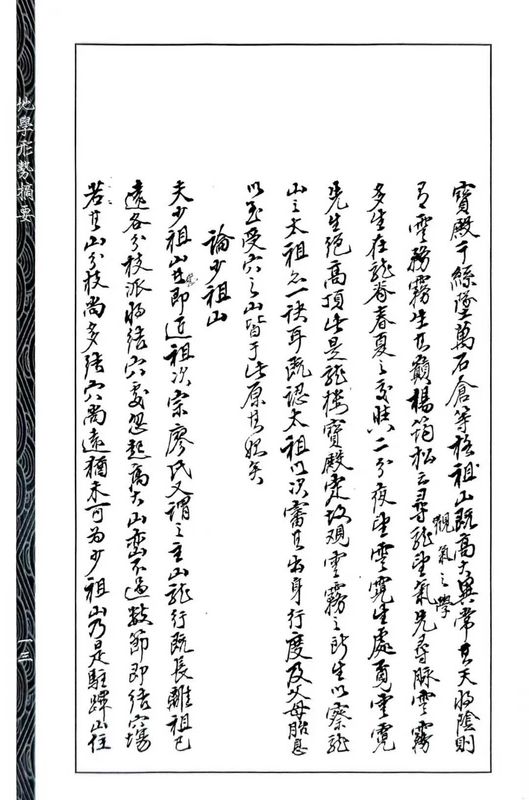 寶殿千絲墜萬石倉等格祖山既高大異常其天將陰則
有雲務霧生其巔楊筠松云尋龍望氣先尋脉雲霧
觀氣之學
多生在龍脊春夏之交時二分夜望雲霓生處覓雲霓
先生絕高頂此是龍樓寶殿定故观雲霧之所生以察龍
山之太祖此一訣耳既認太祖以次審其出身行度及父母胎息
以至受穴之山皆于此原其始矣
論少祖山
夫少祖山者即近祖次宗廖氏又謂之主山龍行既長離祖已
遠各分枝派將結穴處忽起高大山巒不過數節即結穴場
若其山分枝尚多結穴尚遠猶未可為少祖山乃是駐蹕山住
地學形勢摘要
一三